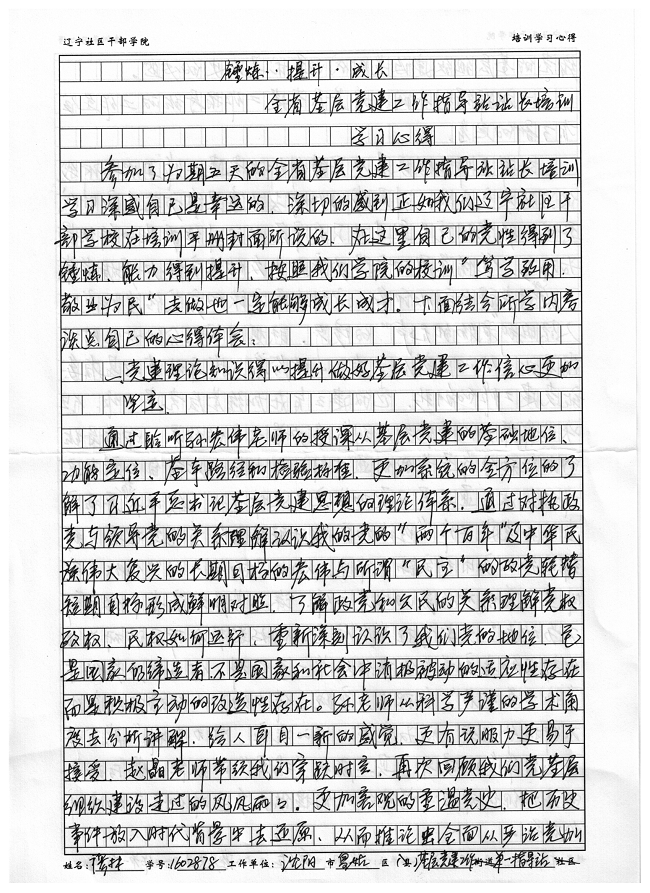 辽宁社区干部学院 培训学习心得
锤炼·提升·成长
全省基层党建工作指导站站长培训
学习心得
参加了为期五天的全省基层党建工作指导站站长培训
学习深感自己是幸运的,深切的感到正如我们辽宁社区干
部学校在培训手册封面所说的,在这里自己的党性得到了
锤炼,能力得到提升,按照我们学院的校训“笃学致用,
敬业为民”去做也一定能够成长成才。下面结合所学内容
谈点自己的心得体会:
一、党建理论知识得以提升做好基层党建工作信心更加
坚定
通过聆听孙宏伟老师的授课从基层党建的基础地位、
功能定位、基本路径和检验标准,更加系统的全方位的了
解了习近平总书记基层党建思想的理论体系。通过对执政
党与领导党的关系理解认识我的党的“两个百年”及中华民
族伟大复兴的长期目标的宏伟与所谓“民主”的政党轮替
短期目标形成鲜明对照,了解政党和公民的关系理解党权
政权、民权如何运行,重新深刻认识了我们党的地位,它
是国家的缔造者不是国家和社会中消极被动的适应性存在
而是积极主动的改造性存在。孙老师从科学严谨的学术角
度去分析讲解,给人耳目一新的感觉,更有说服力更易于
接受。赵晶老师带领我们穿越时空,再次回顾我们党基层
组织建设走过的风风雨雨。更加客观的重温党史,把历史
事件放入时代背景中去还原,从而推论出全面从严治党加
姓名: 学号:1602878 工作单位:沈阳 市 区 基层党建工作 第一指导站 社区